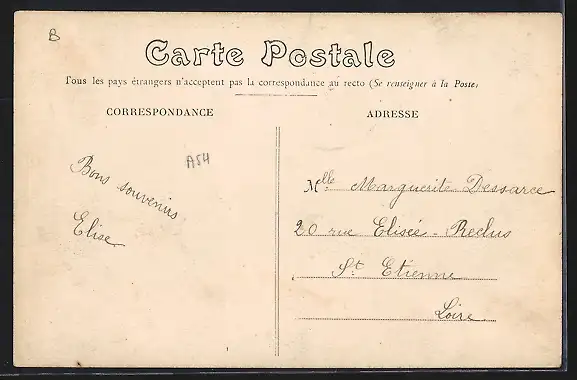 B
Carte Postale
Tous les pays étrangers n'acceptent pas la correspondance au recto (Se renseigner à la Poste)
CORRESPONDANCE
ADRESSE
A54
Bons souvenirs
Elise
Mlle Marguerite Dessarce
20 rue Elisée-Reclus
St Etienne
Loire.